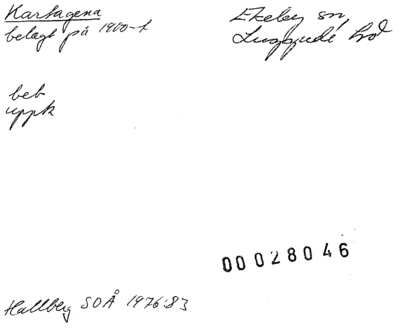 Kartagena
belagt på 1900-t
Ekeby sn,
Luggude hd
beb
uppk
00028046
Hallberg SOÅ 1976:83